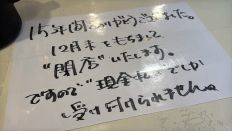 15年間ありがとうございました。
12月末をもちまして
"閉店"いたします。
ですので"現金払いでしか
受け付けられません。